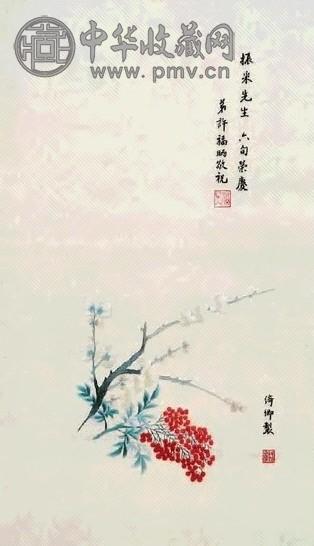 中华收藏网
www.pmv.cn
振采先生 六旬榮慶
弟許福昞敬祝
倚卿製